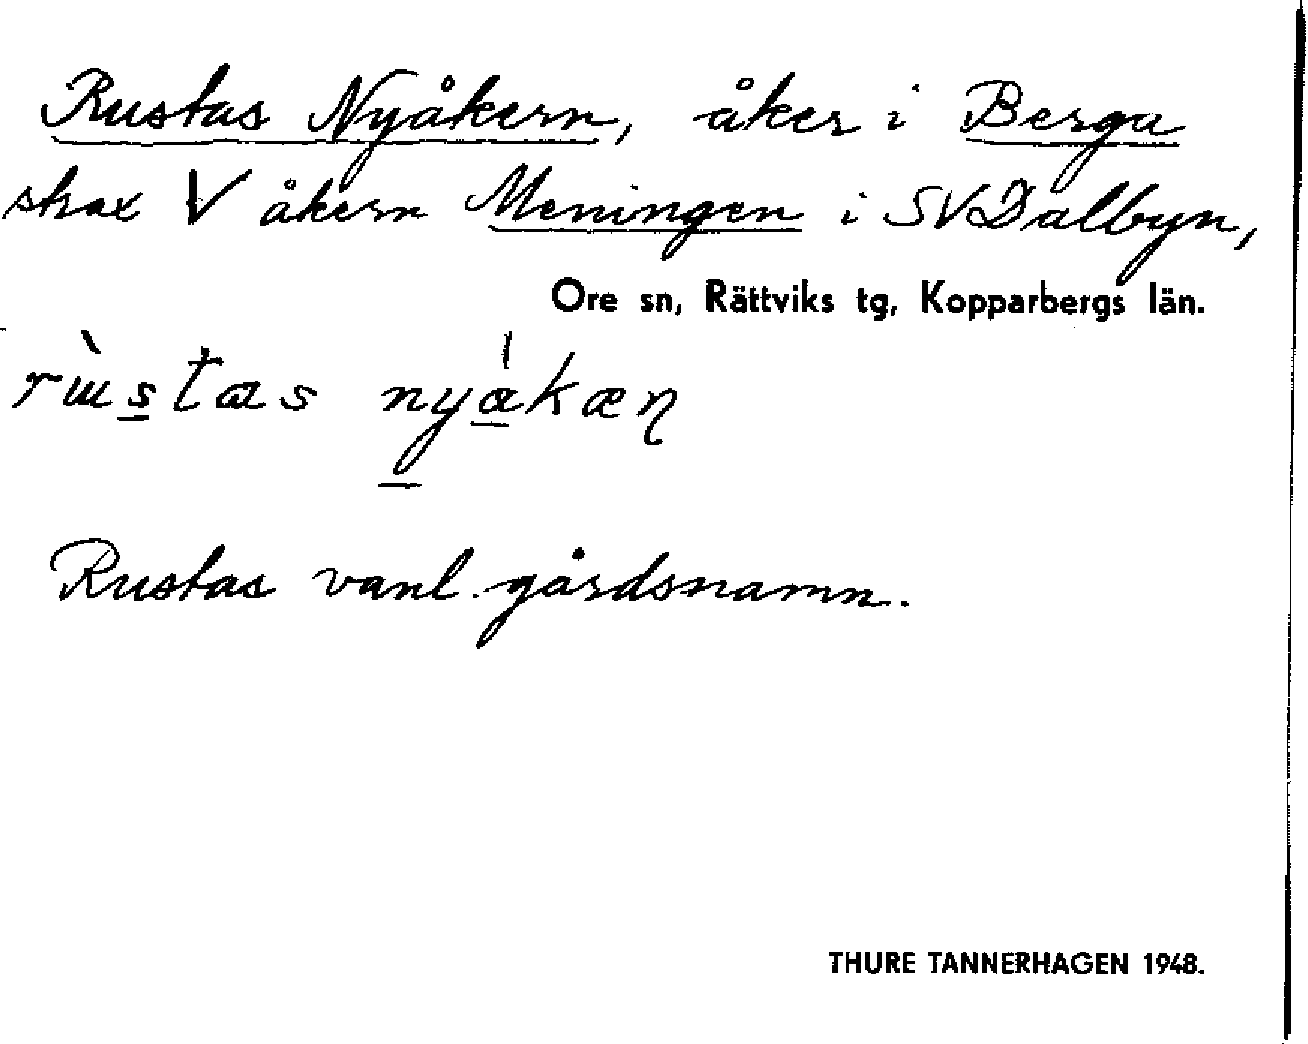 Rustas Nyåkern, åker i Berga
strax V åkern Meningen i SV Dalbyn,
Ore sn, Rättviks tg, Kopparbergs län.
rùstas nyákæɳ
Rustas vanl. gårdsnamn.
THURE TANNERHAGEN 1948.